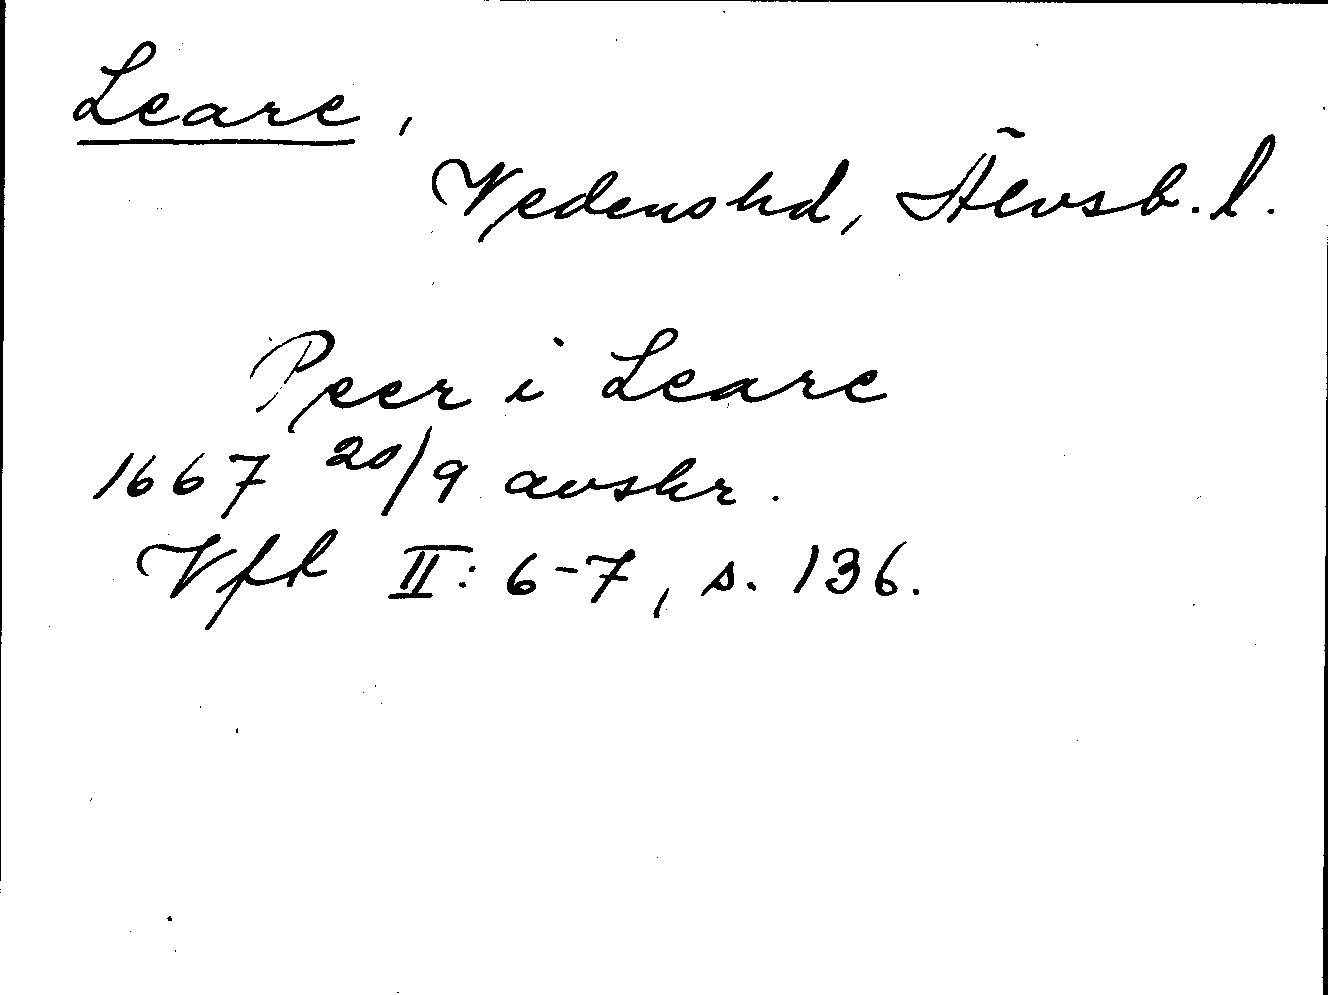 Leare,
Vedens hd, Älvsb. l.
Peer i Leare
1667 20/9 avskr.
Vfk II: 6-7, s. 136.